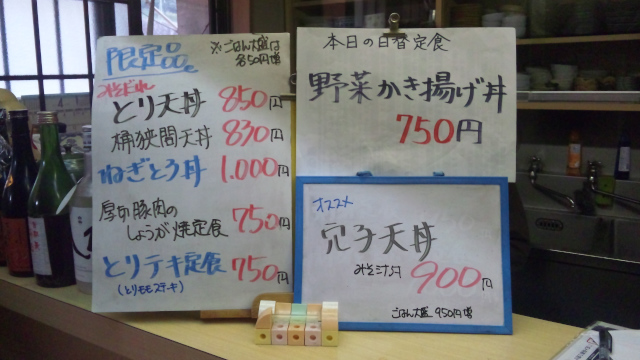 限定品。
※ごはん大盛は
各50円増
みそだれ
とり天丼 850円
桶狭間天丼 830円
ねぎとろ丼 1.000円
厚切豚肉の
しょうが焼定食 750円
とりテキ定食 750円
(とりももステーキ)
本日の日替定食
野菜かき揚げ丼
750円
オススメ
穴子天丼
みそ汁付 900円
ごはん大盛 950円増